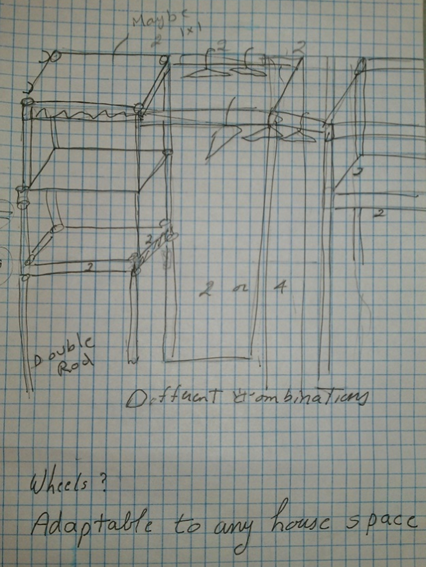 Maybe
1x1
2
2
2
2
2
2
2 or 4
2
Double
Rod
Different Combinations
Wheels?
Adaptable to any house space